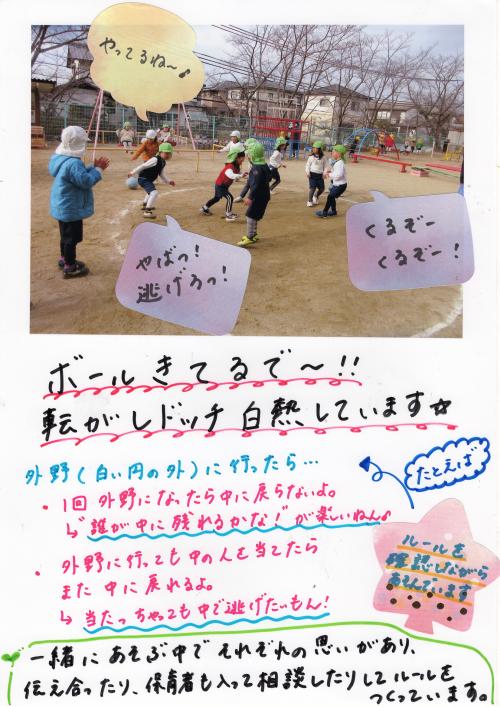 やってるね〜♪
やばっ!
逃げろっ!
くるぞー
くるぞー!
ボールきてるで〜!!
転がしドッチ白熱しています☆
外野(白い円の外)に行ったら…
たとえば
・1回外野になったら中に戻らないよ。
↳"誰が中に残れるかな!"が楽しいねん♪
・外野に行っても中の人を当てたら
また中に戻れるよ。
↳当たっちゃっても中で逃げたいもん!
ルールを
確認しながら
あそんでいます
一緒にあそぶ中でそれぞれの思いがあり、
伝え合ったり、保育者も入って相談したりしてルールを
つくっています。